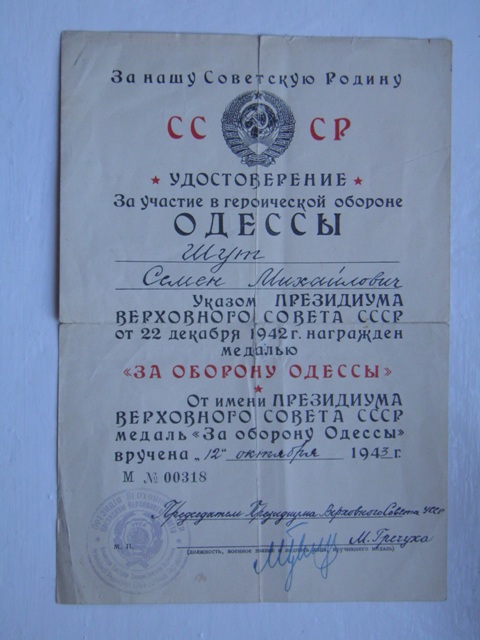 За нашу Советскую Родину
СС СР
УДОСТОВЕРЕНИЕ
За участие в героической обороне
ОДЕССЫ
Шут
Семен Михайлович
Указом ПРЕЗИДИУМА
ВЕРХОВНОГО СОВЕТА СССР
от 22 декабря 1942 г. награжден
медалью
«ЗА ОБОРОНУ ОДЕССЫ»
От имени ПРЕЗИДИУМА
ВЕРХОВНОГО СОВЕТА СССР
медаль «За оборону Одессы»
вручена „12" октября 1943 г.
М № 00318
Председатель Президиума Верховного Совета УССР
М. П. М. Гречуха
(должность, военное звание и подпись лица, вручившего медаль)